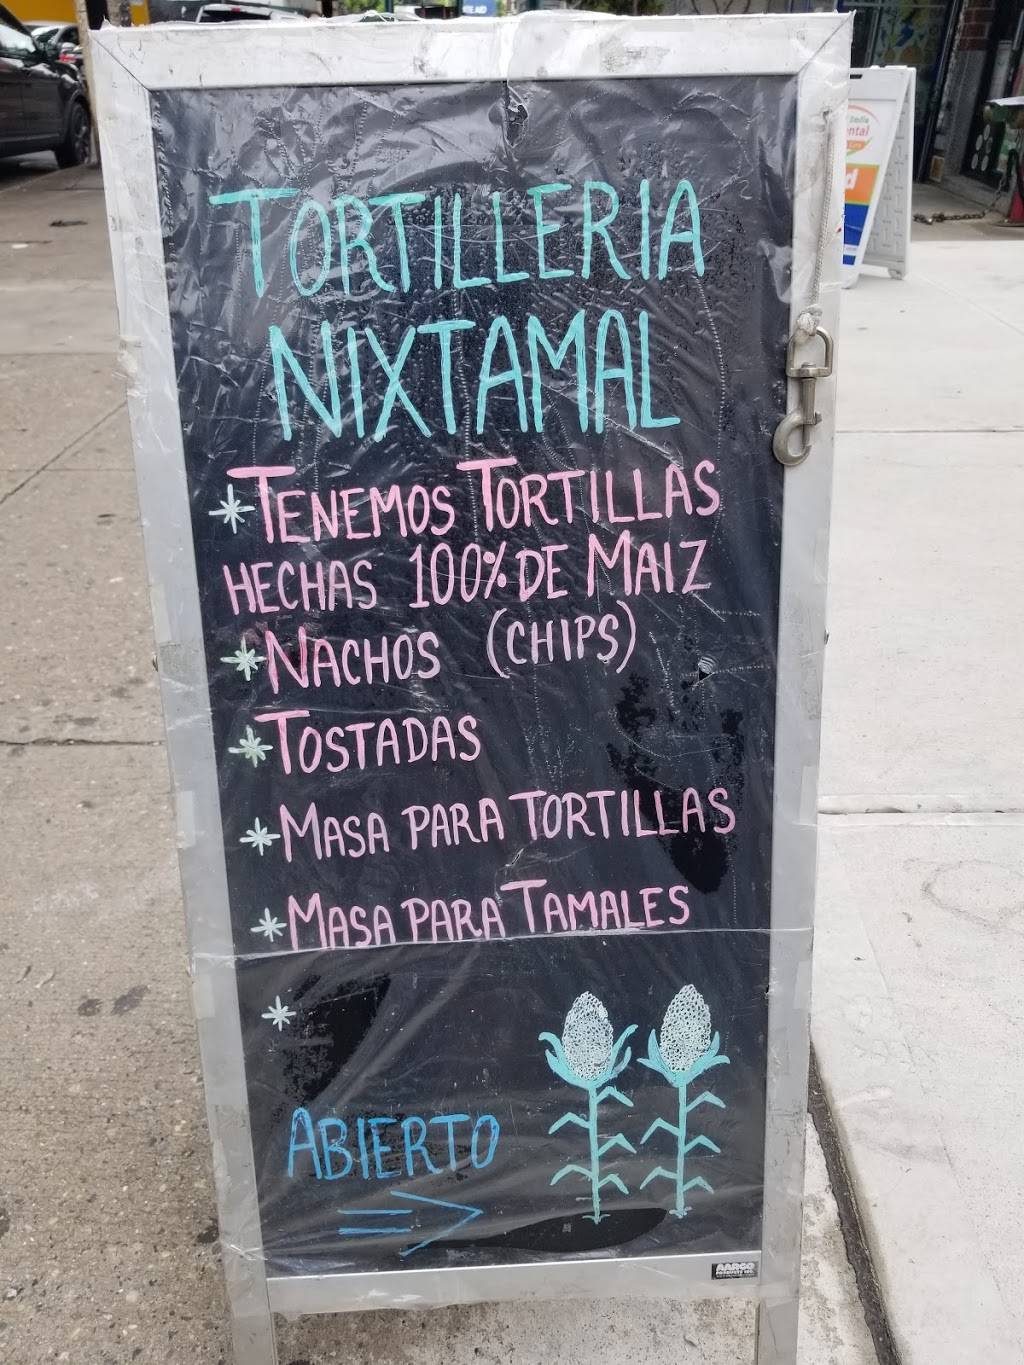 TE AID
TORTILLERIA
NIXTAMAL
* TENEMOS TORTILLAS
HECHAS 100% DE MAIZ
* NACHOS (CHIPS)
* TOSTADAS
* MASA PARA TORTILLAS
* MASA PARA TAMALES
*
ABIERTO
AARCO